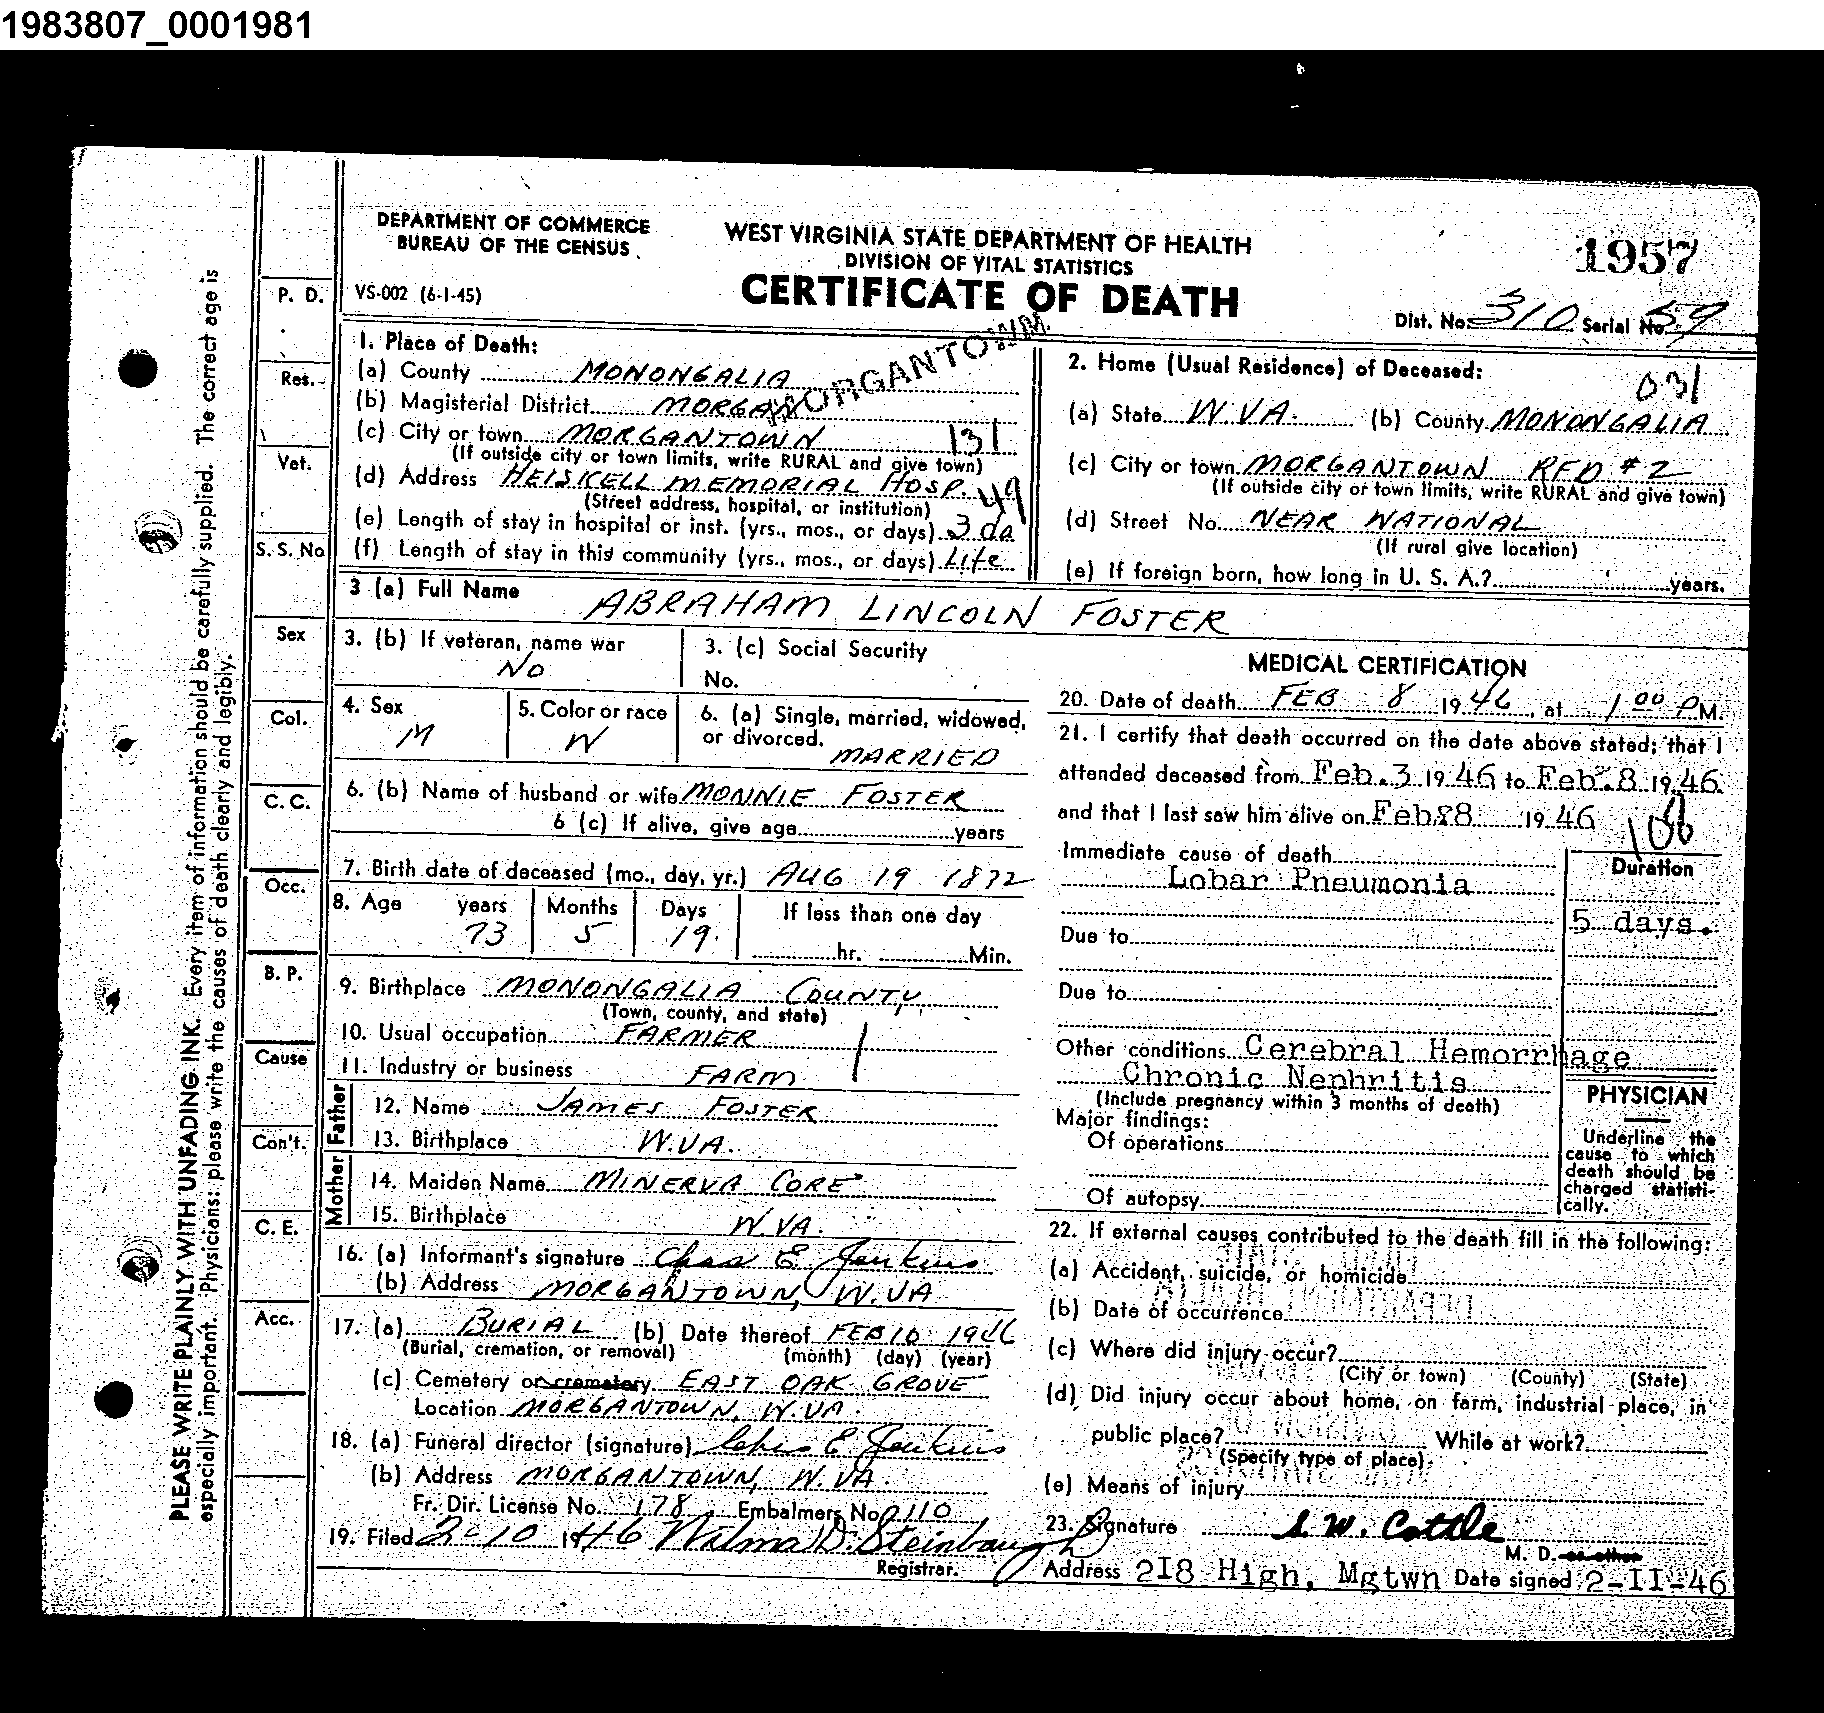 1983807_0001981
DEPARTMENT OF COMMERCE
BUREAU OF THE CENSUS
WEST VIRGINIA STATE DEPARTMENT OF HEALTH
DIVISION OF VITAL STATISTICS
CERTIFICATE OF DEATH
1957
VS-002 (6-1-45)
Dist. No. 310 Serial No. 59
MORGANTOWN
PLEASE WRITE PLAINLY WITH UNFADING INK. Every item of information should be carefully supplied. The correct age is
especially important. Physicians: please write the causes of death clearly and legibly.
P. D.
Res.
Vet.
S. S. No
Sex
Col.
C. C.
Occ.
B. P.
Cause
Con't.
C. E.
Acc.
1. Place of Death:
(a) County MONONGALIA
(b) Magisterial District MORGAN
(c) City or town MORGANTOWN 131
(If outside city or town limits, write RURAL and give town)
(d) Address HEISKELL MEMORIAL HOSP. 49
(Street address, hospital, or institution)
(e) Length of stay in hospital or inst. (yrs., mos., or days) 3 da
(f) Length of stay in this community (yrs., mos., or days) Life
2. Home (Usual Residence) of Deceased:
031
(a) State W.VA. (b) County MONONGALIA
(c) City or town MORGANTOWN RFD #2
(If outside city or town limits, write RURAL and give town)
(d) Street No. NEAR NATIONAL
(If rural give location)
(e) If foreign born, how long in U. S. A.? years.
3 (a) Full Name ABRAHAM LINCOLN FOSTER
3. (b) If veteran, name war
NO
3. (c) Social Security
No.
4. Sex
M
5. Color or race
W
6. (a) Single, married, widowed,
or divorced.
MARRIED
6. (b) Name of husband or wife MONNIE FOSTER
6 (c) If alive, give age years
7. Birth date of deceased (mo., day, yr.) AUG 19 1872
8. Age years Months Days If less than one day
73 5 19. hr. Min.
9. Birthplace MONONGALIA COUNTY
(Town, county, and state)
10. Usual occupation FARMER
11. Industry or business FARM
Father
12. Name JAMES FOSTER
13. Birthplace W.VA.
Mother
14. Maiden Name MINERVA CORE
15. Birthplace W.VA.
16. (a) Informant's signature Chas E Jenkins
(b) Address MORGANTOWN, W.VA
17. (a) BURIAL (b) Date thereof FEB 10 1946
(Burial, cremation, or removal) (month) (day) (year)
(c) Cemetery or crematory EAST OAK GROVE
Location MORGANTOWN, W.VA.
18. (a) Funeral director (signature) Chas E Jenkins
(b) Address MORGANTOWN, W.VA.
Fr. Dir. License No. 178 Embalmers No. 2110
19. Filed 2-10 1946 Wilma D. Steinbaugh
Registrar.
MEDICAL CERTIFICATION
20. Date of death FEB 8 1946, at 1 00 P M.
21. I certify that death occurred on the date above stated; that I
attended deceased from Feb.3 1946 to Feb.8 1946
and that I last saw him alive on Feb.8 1946
108
Immediate cause of death
Lobar Pneumonia
Duration
5 days.
Due to
Due to
Other conditions Cerebral Hemorrhage
Chronic Nephritis
(Include pregnancy within 3 months of death)
Major findings:
Of operations
Of autopsy
PHYSICIAN
Underline the
cause to which
death should be
charged statisti-
cally.
22. If external causes contributed to the death fill in the following:
(a) Accident, suicide, or homicide
(b) Date of occurrence
(c) Where did injury occur?
(City or town) (County) (State)
(d) Did injury occur about home, on farm, industrial place, in
public place? While at work?
(Specify type of place)
(e) Means of injury
23. Signature S. W. Cottle
M. D. or other
Address 218 High, Mgtwn Date signed 2-II-46